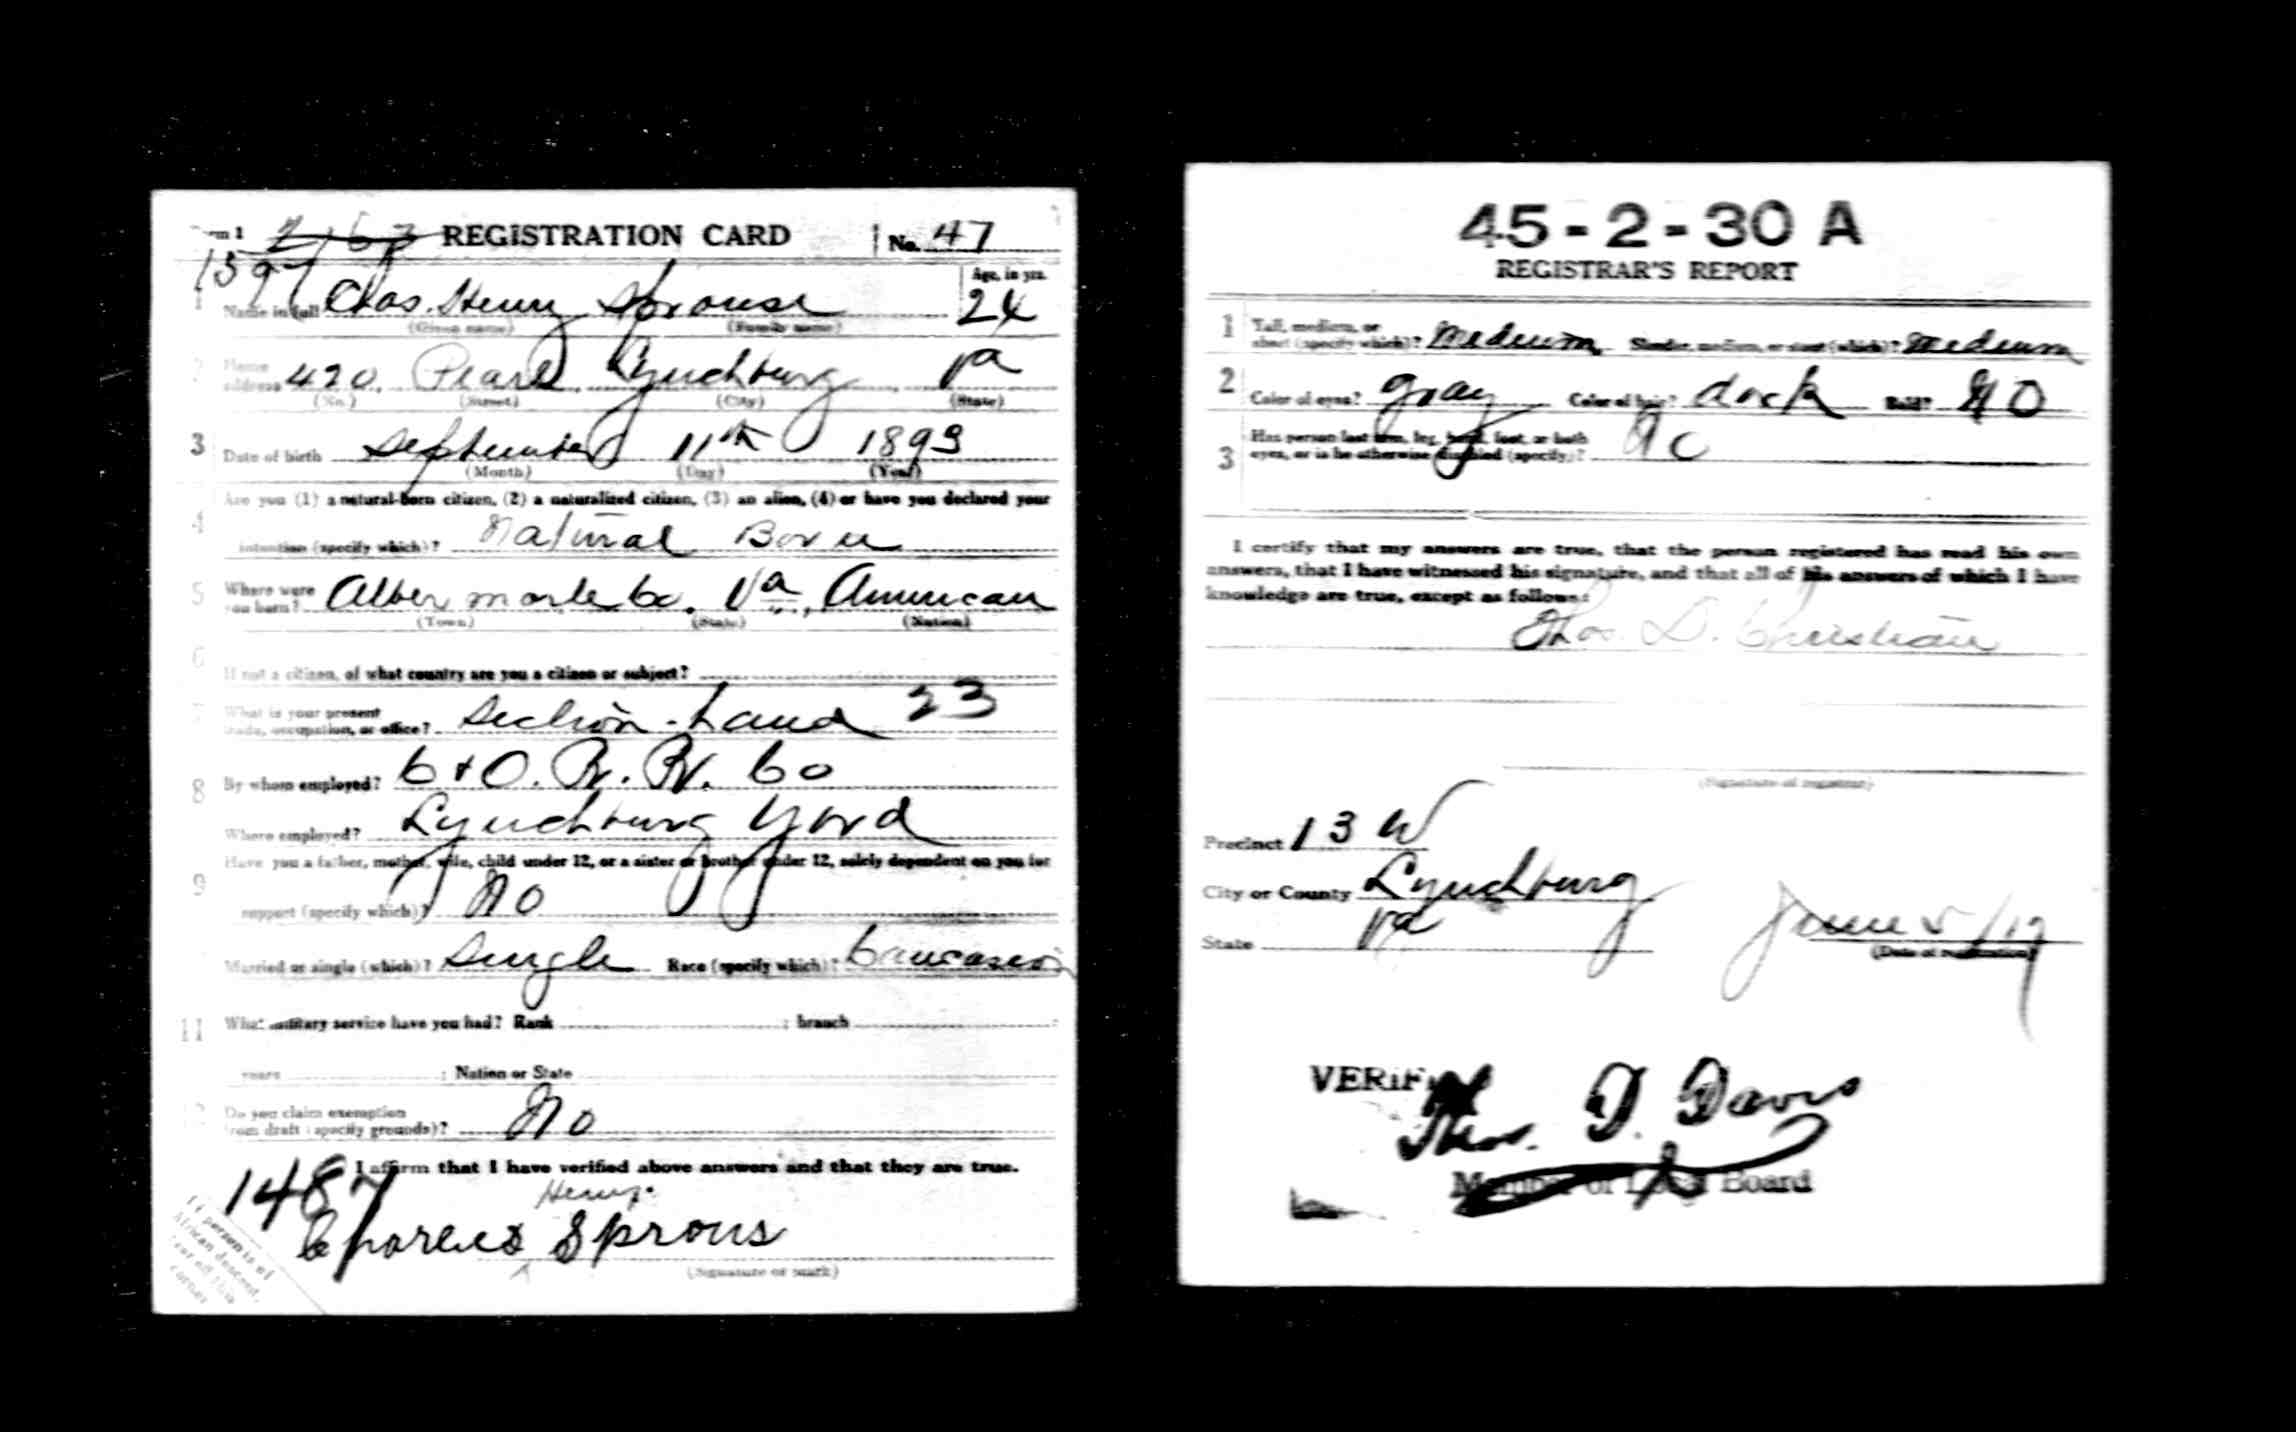 2163 REGISTRATION CARD No. 47
1597
1 Name in full Chas. Henry Sprouse Age, in yrs. 24
(Given name) (Family name)
2 Home address 420 Pearl Lynchburg Va
(No.) (Street) (City) (State)
3 Date of birth September 11th 1893
(Month) (Day) (Year)
4 Are you (1) a natural-born citizen, (2) a naturalized citizen, (3) an alien, (4) or have you declared your
intention (specify which)? Natural Born
5 Where were you born? Albermarle Co. Va. American
(Town) (State) (Nation)
6 If not a citizen, of what country are you a citizen or subject?
7 What is your present trade, occupation, or office? Section-hand 23
8 By whom employed? C & O. R. R. Co
Where employed? Lynchburg Yard
9 Have you a father, mother, wife, child under 12, or a sister or brother under 12, solely dependent on you for
support (specify which)? No
Married or single (which)? Single Race (specify which)? Caucasian
11 What military service have you had? Rank ; branch
years ; Nation or State
12 Do you claim exemption from draft (specify grounds)? No
I affirm that I have verified above answers and that they are true.
1487
Henry
Charles Sprous
(Signature or mark)
If person is of
African descent,
tear off this
corner
45-2-30 A
REGISTRAR'S REPORT
1 Tall, medium, or short (specify which)? Medium Slender, medium, or stout (which)? Medium
2 Color of eyes? Gray Color of hair? dark Bald? NO
3 Has person lost arm, leg, hand, foot, or both eyes, or is he otherwise disabled (specify)? No
I certify that my answers are true, that the person registered has read his own
answers, that I have witnessed his signature, and that all of his answers of which I have
knowledge are true, except as follows:
Thos. D. Christian
(Signature of registrar)
Precinct 13 W
City or County Lynchburg
State Va
June 5/17
(Date of registration)
Thos. D. Davis
Member of Local Board